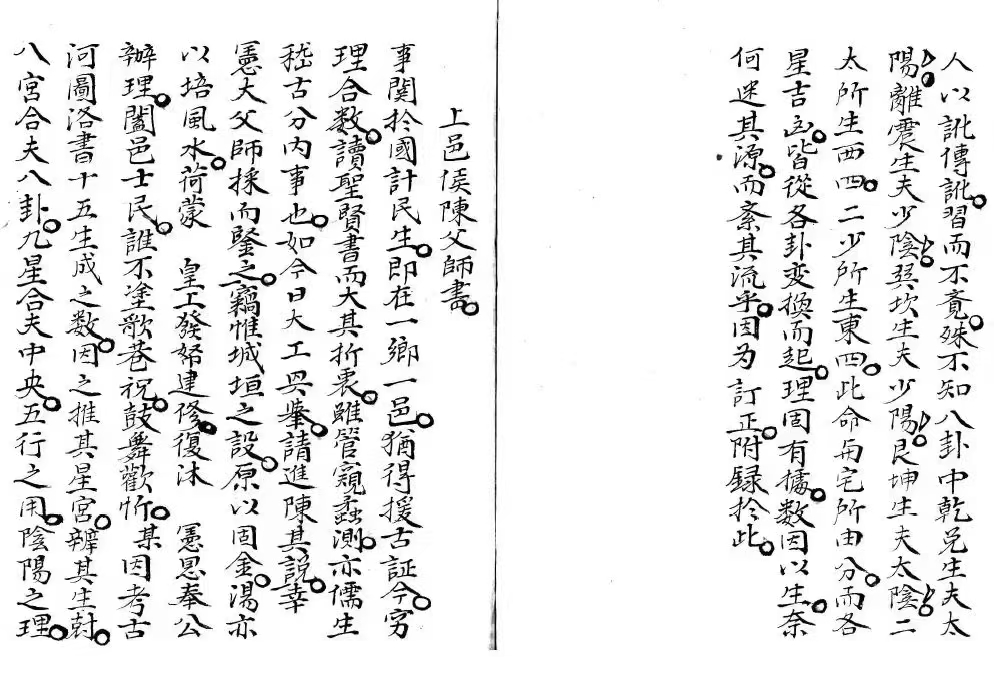 人以訛傳訛。習而不竟。殊不知八卦中乾兌生夫太
陽。離震生夫少陰。巽坎生夫少陽。艮坤生夫太陰。二
太所生西四。二少所生東四。此命與宅所由分。而各
星吉凶。皆從各卦变換而起。理固有據。数因以生。奈
何迷其源。而紊其流乎。因为訂正。附録扵此。
上邑侯陳父師書。
事関扵國計民生。即在一鄉一邑。猶得援古証今。穷
理合数。讀聖賢書而大其折衷。雖管窺蠡測。亦儒生
嵇古分内事也。如今日大工興舉。請進陳其説。幸
憲大父師採而鑒之。竊惟城垣之設。原以固金湯。亦
以培風水。荷蒙 皇工發帑建修。復沐 憲恩奉公
辦理。闔邑士民。誰不塗歌巷祝。鼓舞歡忻。某因考古
河圖洛書十五生成之数。因之推其星宮。辨其生尅。
八宮合夫八卦。九星合夫中央。五行之用。陰陽之理。